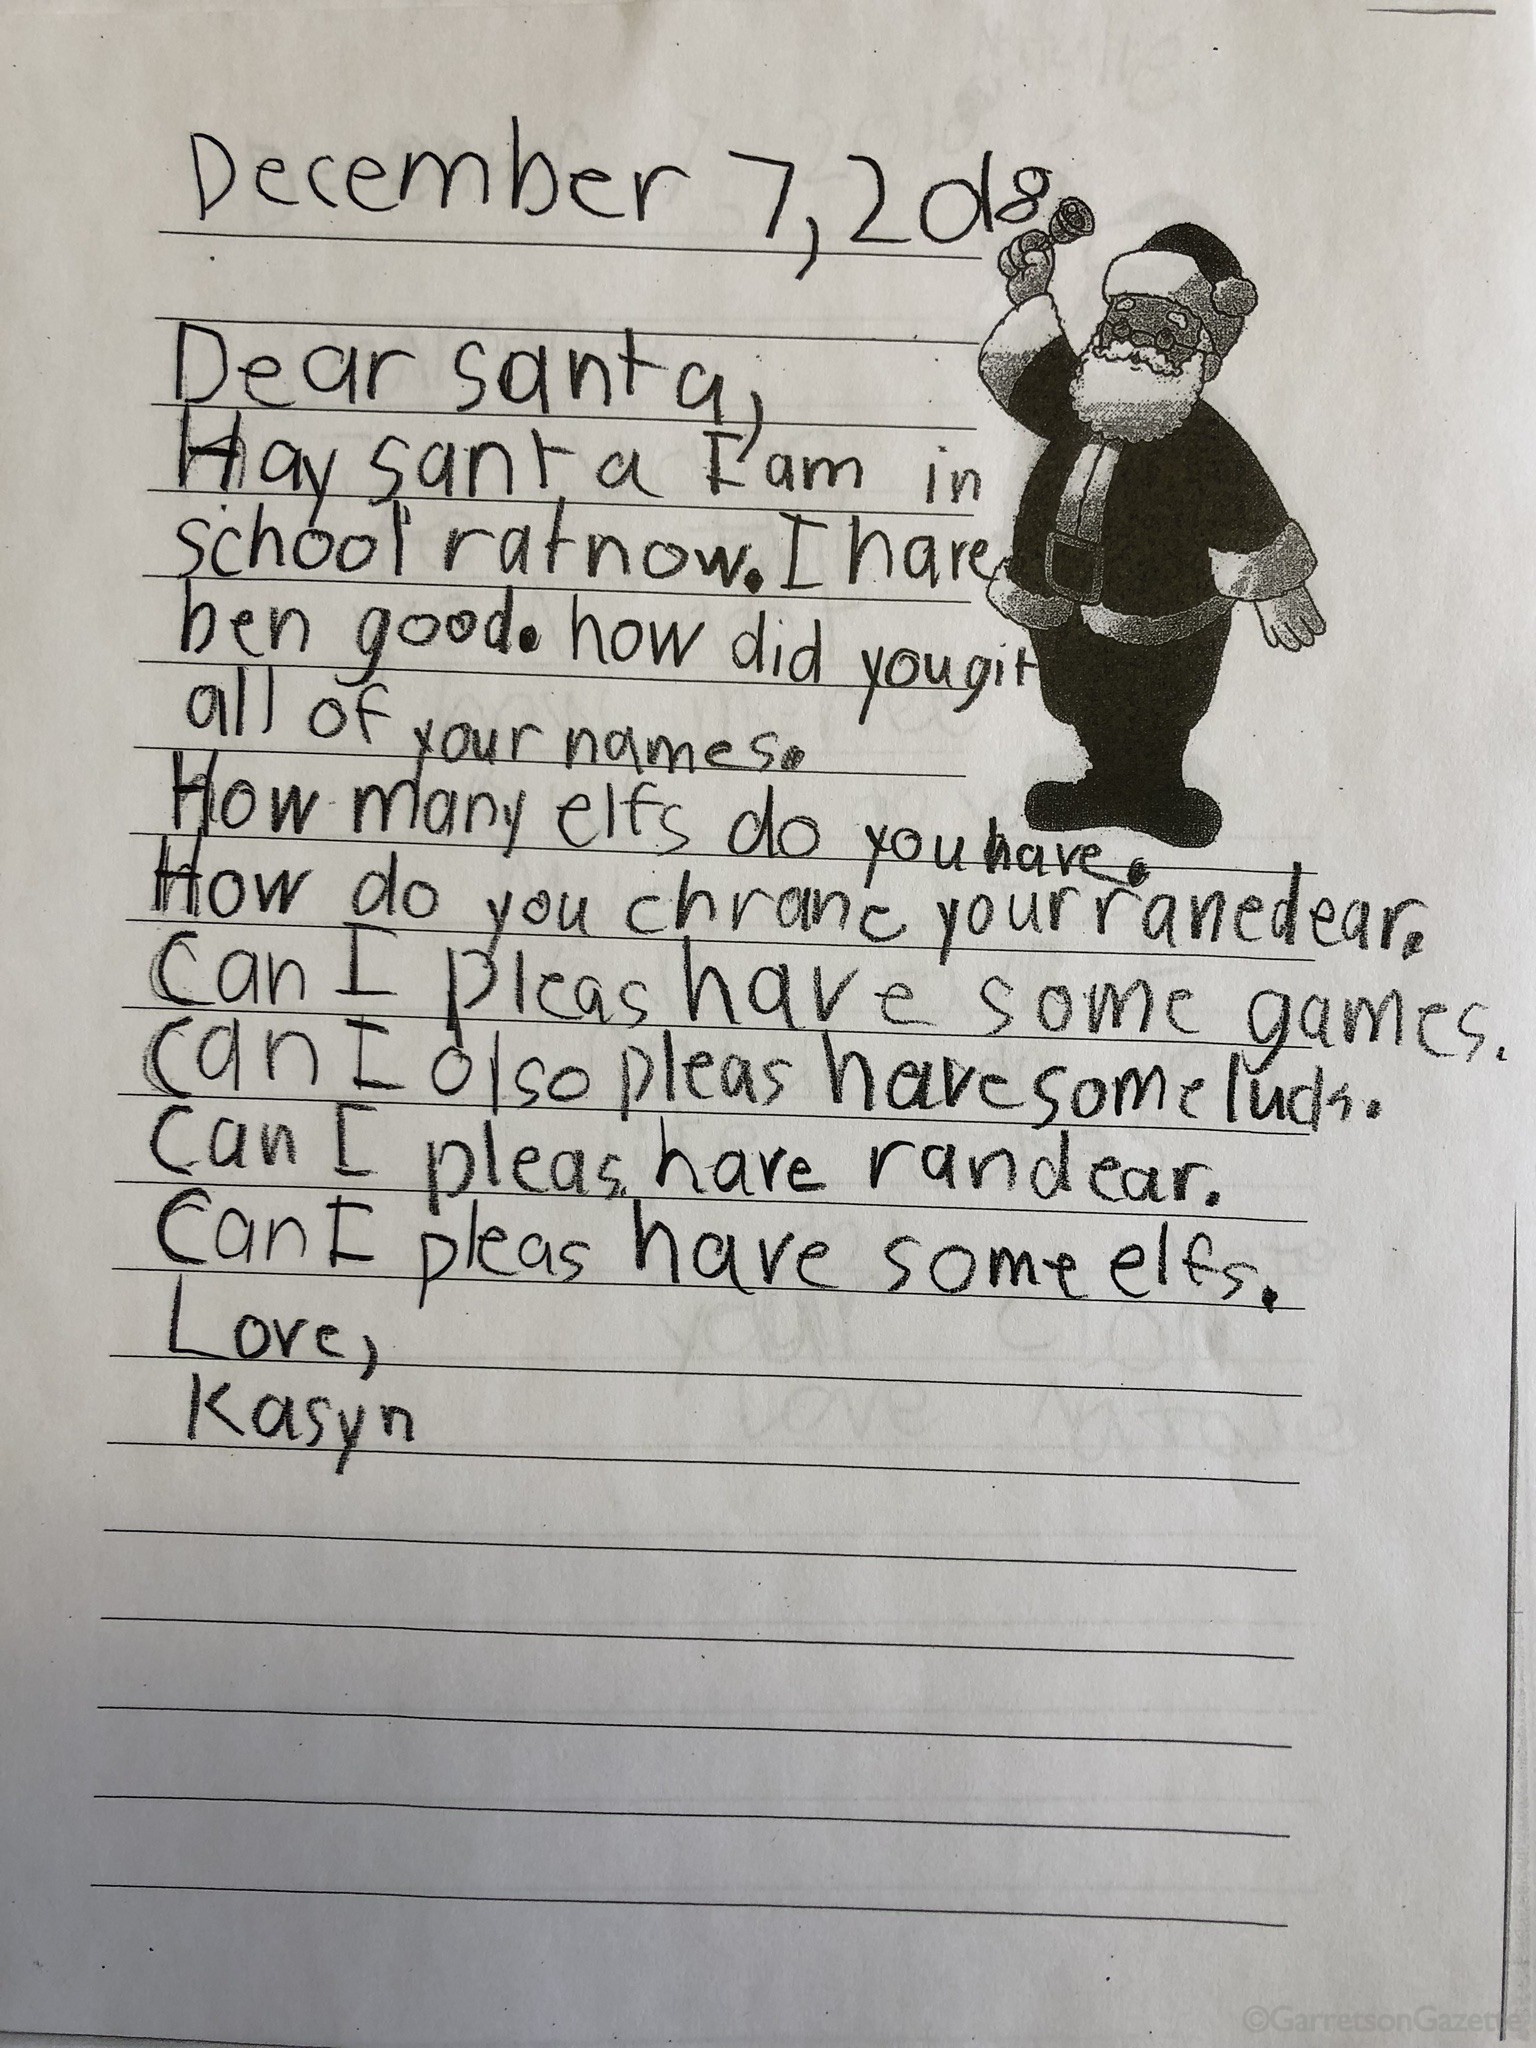 December 7, 2018
Dear santa,
Hay santa I am in
school ratnow. I have
ben good. how did you git
all of your names.
How many elfs do you have.
How do you chrane your ranedear.
Can I pleas have some games.
Can I olso pleas have some luds.
Can I pleas have randear.
Can I pleas have some elfs.
Love,
Kasyn
©GarretsonGazette